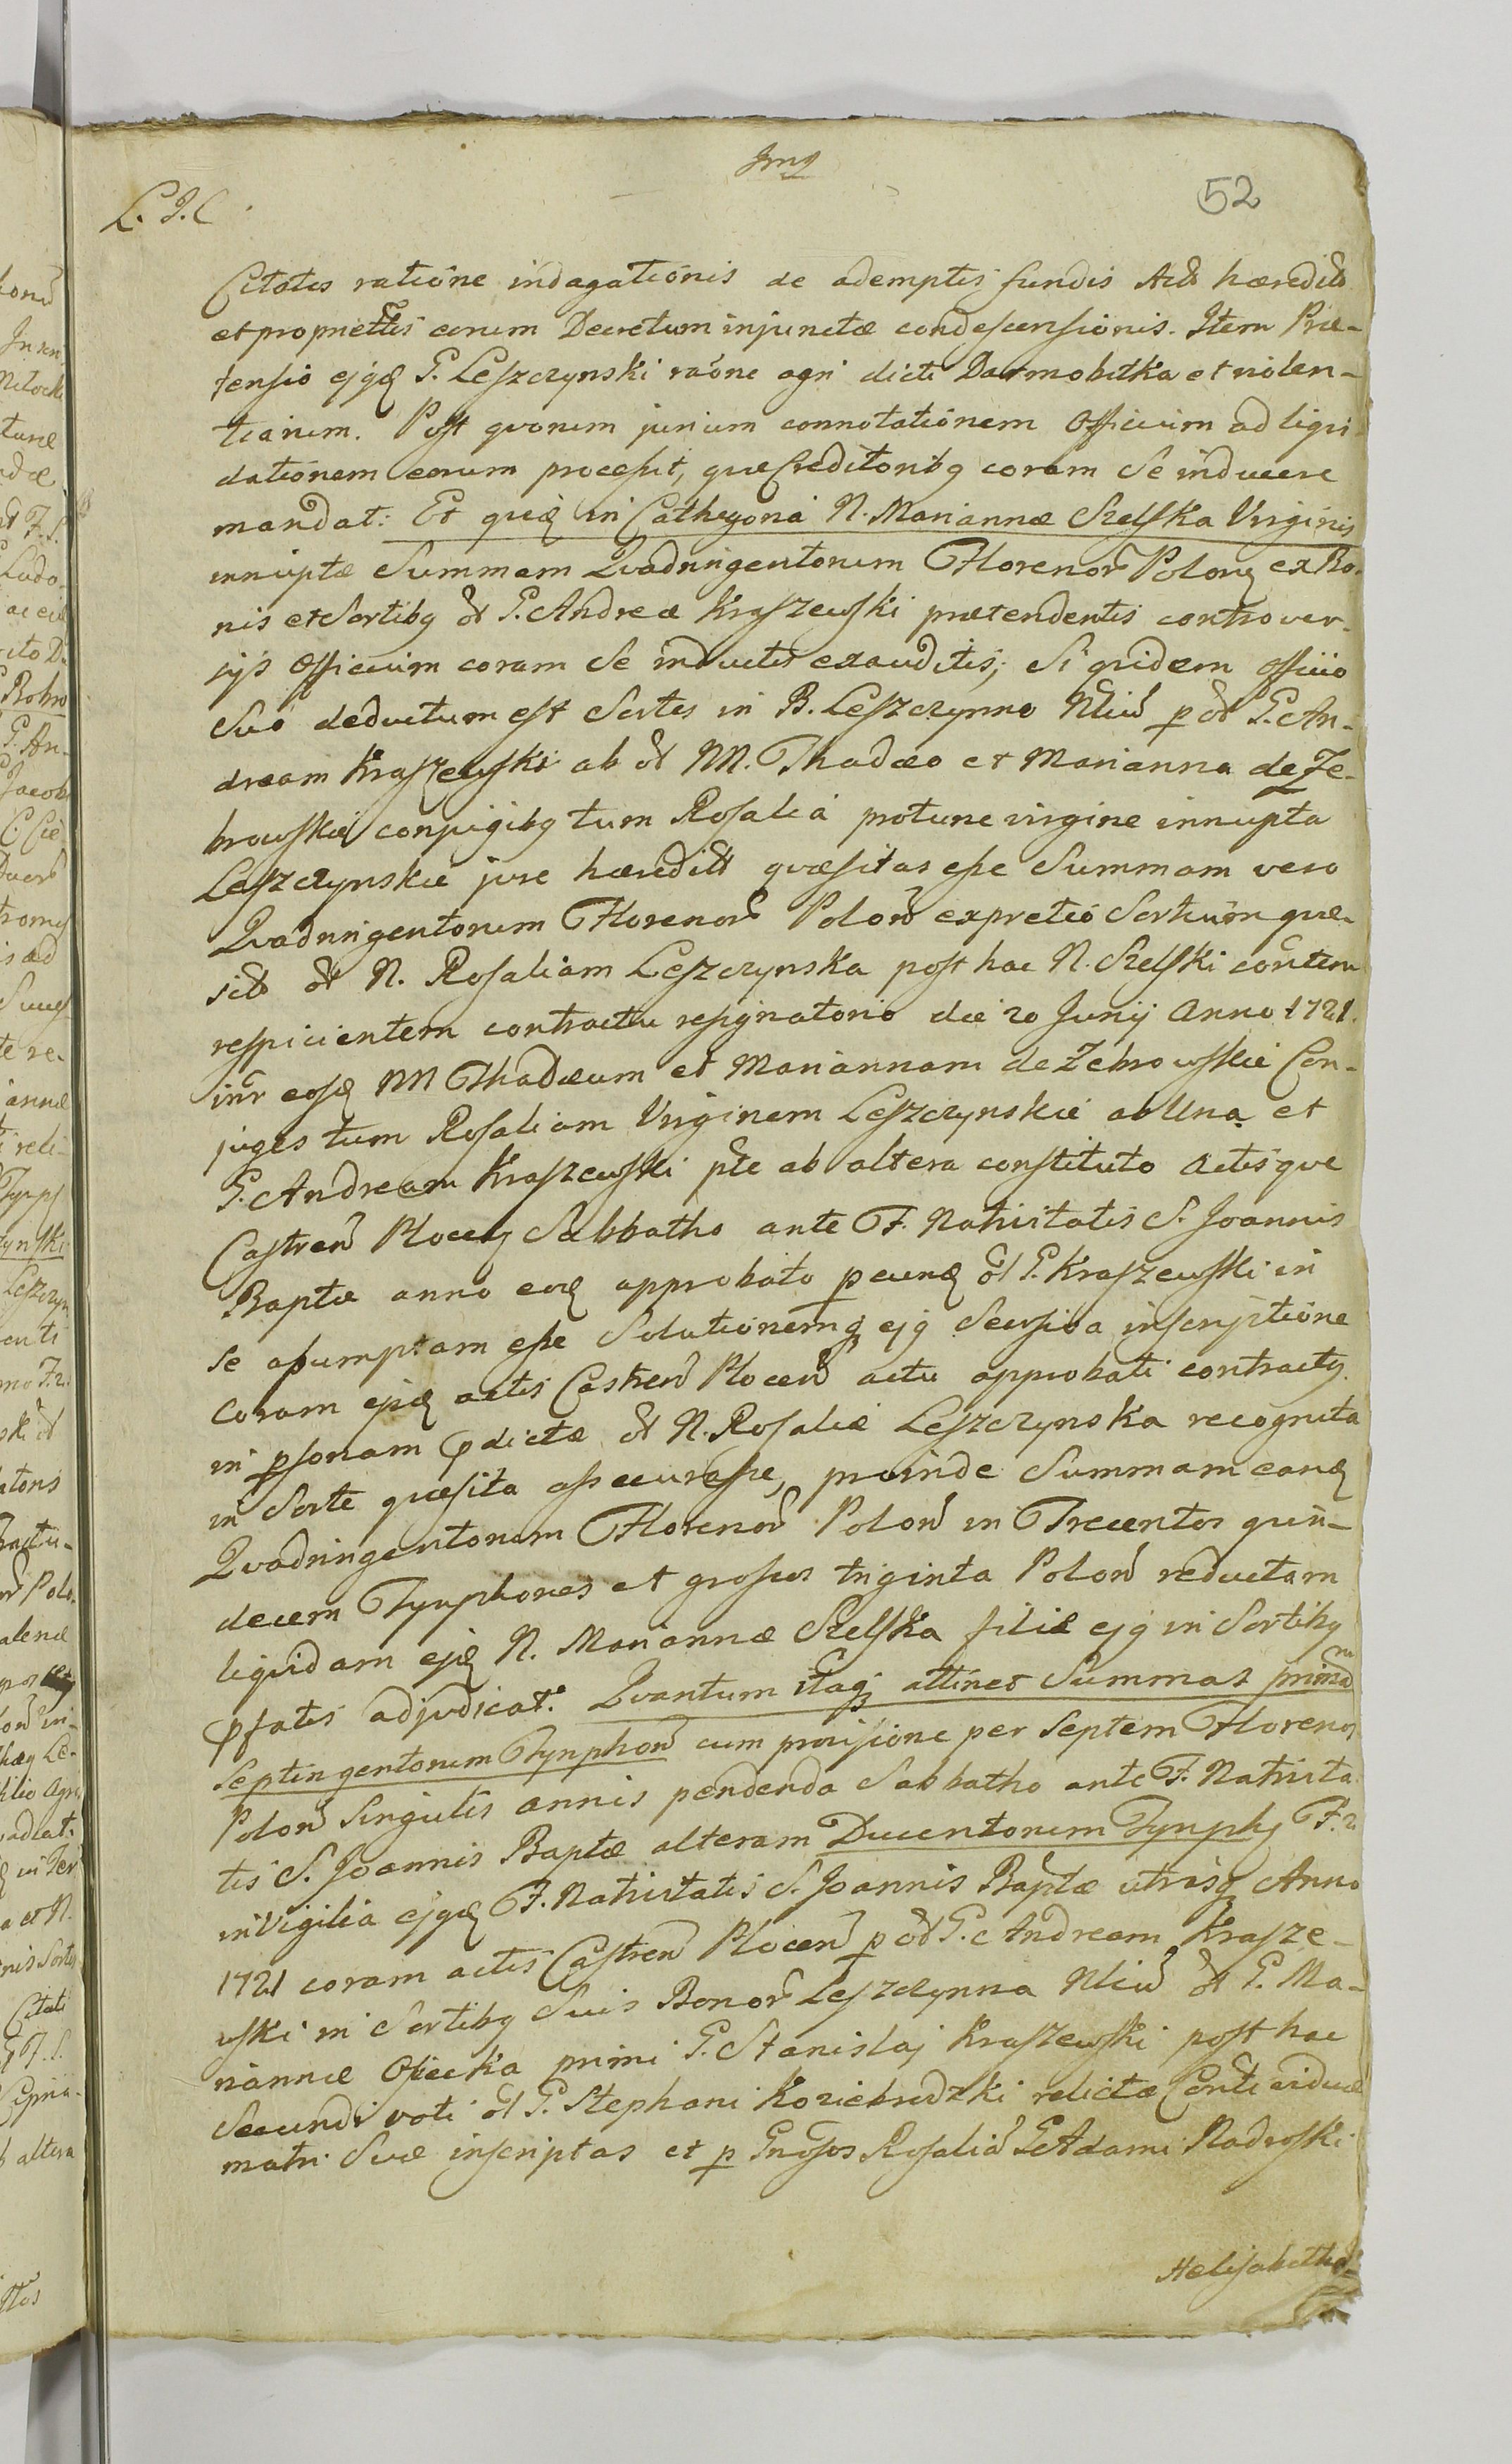 52
L. J. C.
Citatis ratione indagationis de ademptis fundis hæredit
et propriettis eorum Decretum injunctæ condescensionis. Item Præ-
tensio ejqd G. Leszczynski raone agri dicti Darmobitka et violen-
tiarum. Post qvorum jurium connotationem Officium ad liqvi-
dationem eorum processit, quæ Creditoribg coram Se inducere
mandat: Et quid in Cathegoria N. Mariannæ Szelska Virginis
innuptæ Summam Qvadringentorum Florenor Polon ex Bo-
nis et Sortibg G. Andreæ Kraszewski prætendentis controver-
sijs Officium coram Se inductis exauditis, Siqvidem Officio
Suo deductum est Sortes in B. Leszczynno p G. An-
dream Kraszewski ab MM. Thadæo et Marianna de Ze-
browskie conjugibg tum Rosalia protunc virgine innupta
Leszczynskie jure hæredit qvæsitas esse Summam vero
Qvadringentorum Florenor Polon ex pretio Sortium qvæ-
sit N. Rosaliam Leszczynska post hac N. Szelski contem
respicientem contractu resignatorio die 20 Junij Anno 1721.
intr eosd MM Thadæum et Mariannam de Zebrowskie Con-
juges tum Rosaliam Virginem Leszczynskie ab Una et
G. Andream Kraszewski pte ab altera constituto Actisqve
Castren Plocen Sabbatho ante F. Nativitatis S. Joannis
Baptæ anno eod approbato p eund G. Kraszewski in
se assumptam esse Solutionemq ejg Seorsiva inscriptione
coram ejsd actis Castren Plocen actu approbati contractg
in psonam pdictæ N. Rosaliæ Leszczynska recognita
in Sorte qvæsita assecurasse, proinde Summam eand
Qvadringentorum Florenor Polon in Trecentos quin-
decem Tynphones et grossos triginta Polon reductam
liqvidam ejsd N. Mariannæ Szelska filiæ ejg in Sortibg
pfatis adjudicat. Qvantum itaq attinet Summas primam
Septingentorum Tynphon cum provisione per Septem Florenos
Polon Singulis annis pendenda Sabbatho ante F. Nativita-
tis S. Joannis Baptæ alteram Ducentorum Tynphg F. 2
in Vigilia ejqd F. Nativitatis S. Joannis Baptæ utrasq Anno
1721 coram actis Castren Plocen p G. Andream Krasze-
wski in Sortibg Suis Bonor Leszczynna G. Ma-
riannæ Osiecka primi G. Stanislaj Kraszewski post hac
Secundi voti G. Stephani Koziebrodzki relictæ Conti viduæ
matri Suæ inscriptas et p Gnosos Rosalia G Adami Nadroski
Helisabetha